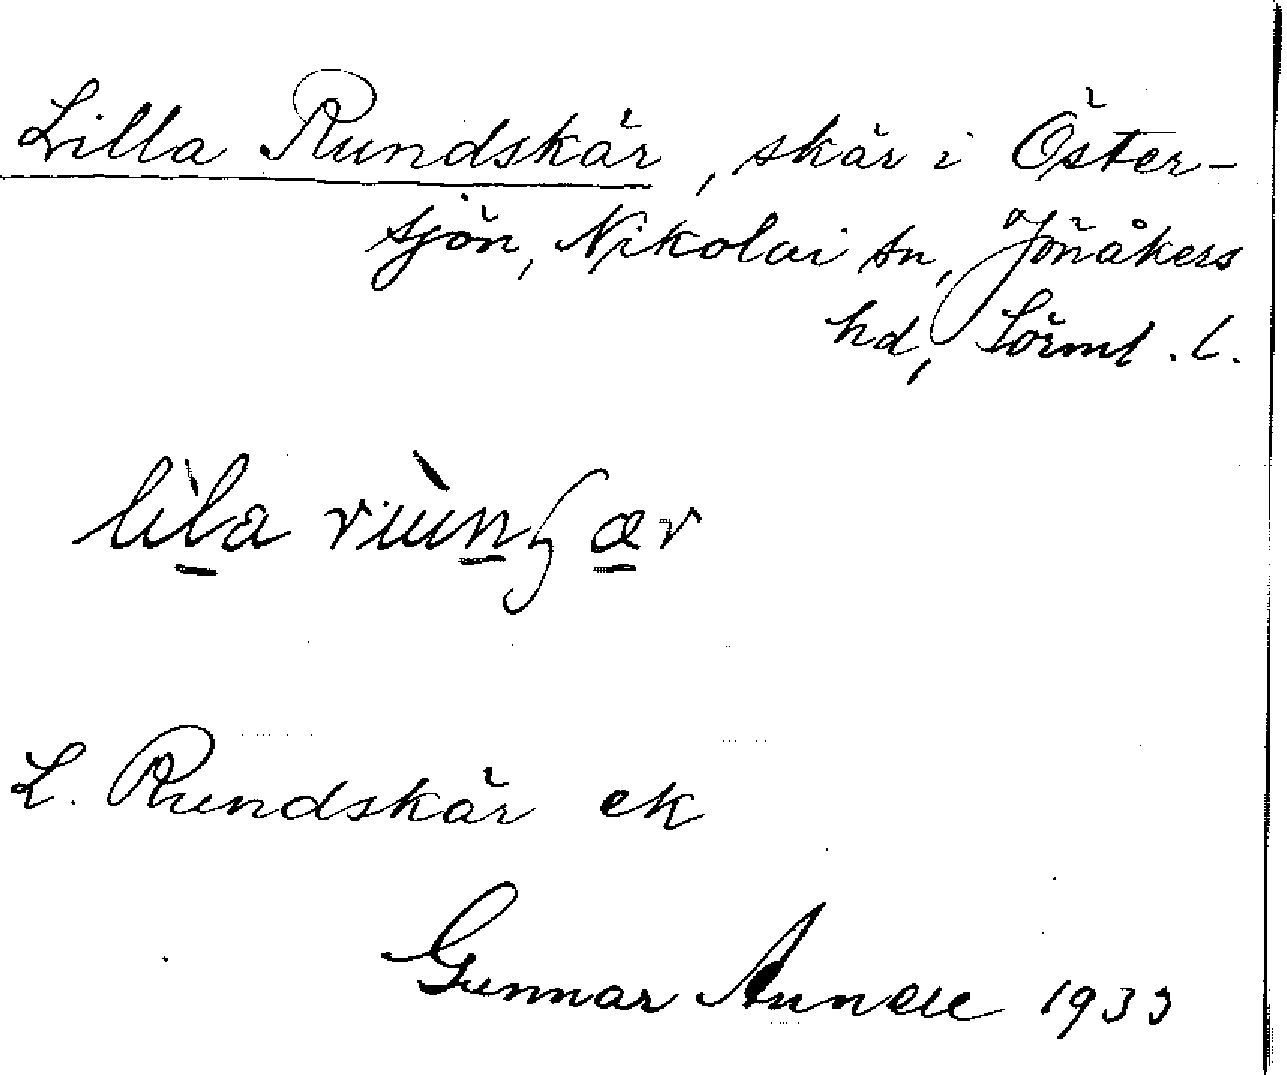 Lilla Rundskär, skär i Öster-
sjön, Nikolai sn, Jönåkers
hd, Sörml. l.
L. Rundskär ek
Gunnar Annell 1933